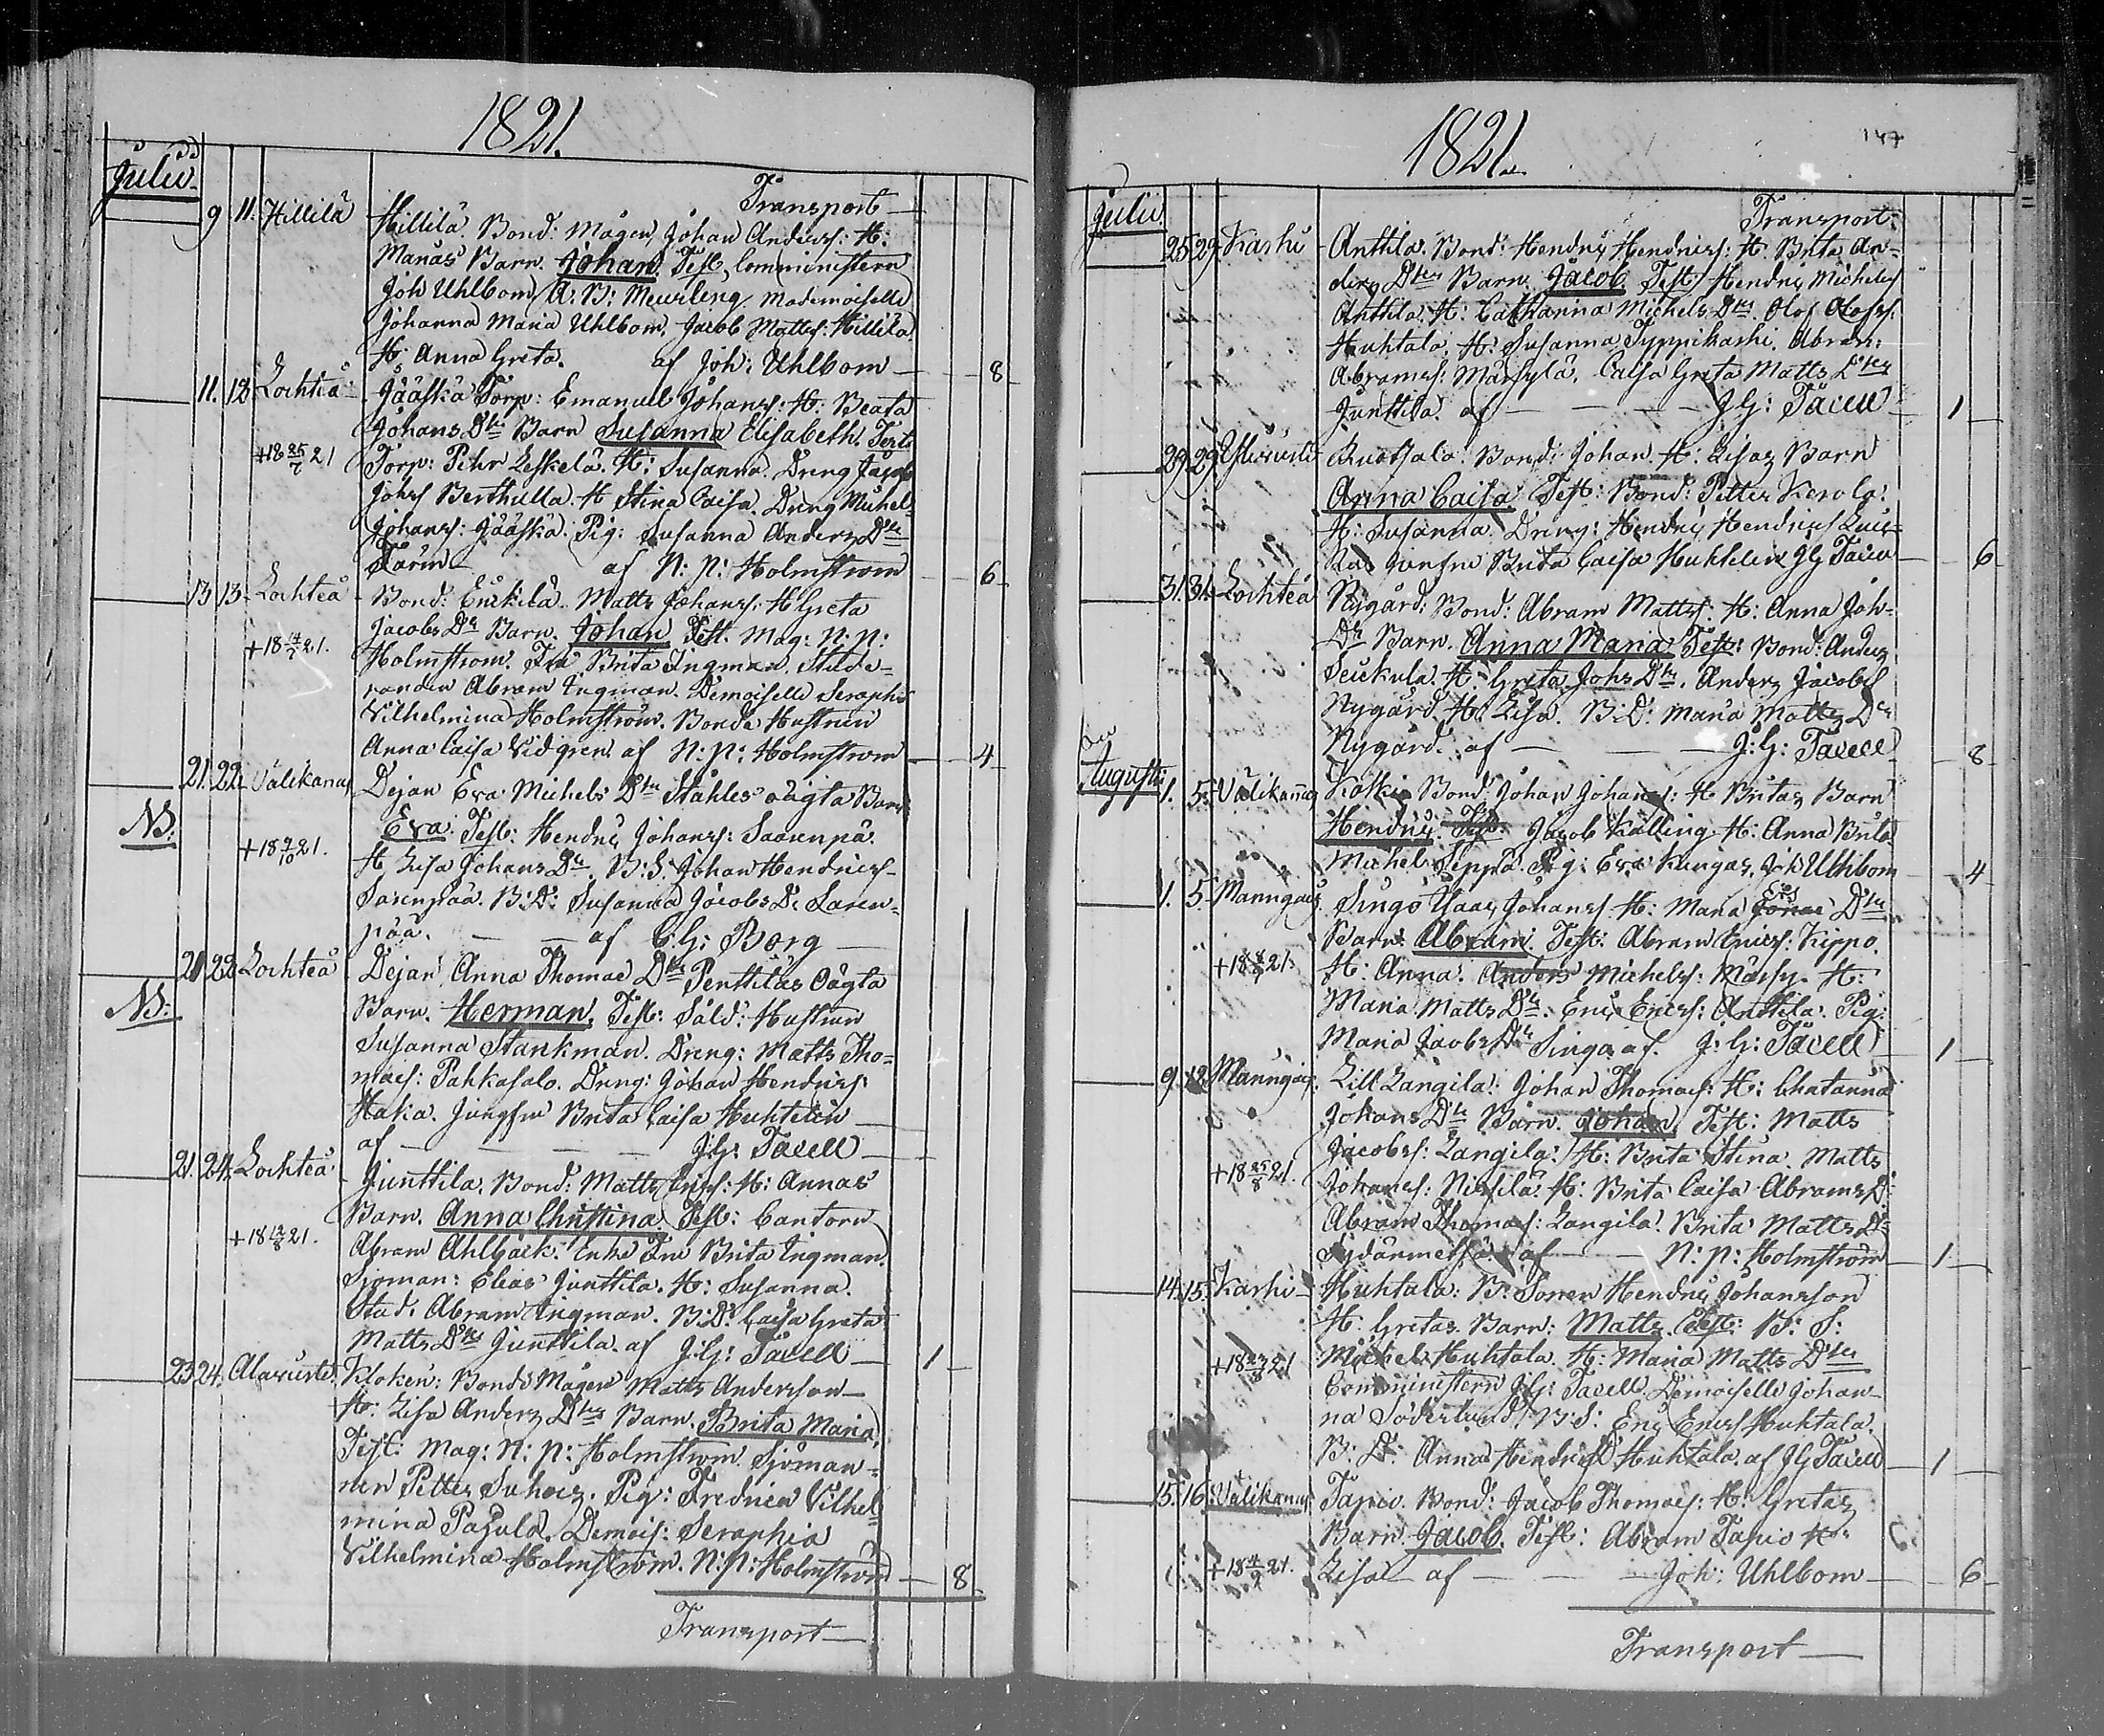 1821.
Julii
Transport
9 11. Hillilä Hillilä Bond: Mågen Johan Anders: H:
Marias Barn. Johan Test, Comministern
Joh Uhlbom A: B: Meurling Mademoiselle
Johanna Maria Uhlbom, Jacob Matts: Hillilä
H: Anna Greta. af Joh: Uhlbom 8
11. 13. Lochteå Jääskä Torp: Emanuel Johans: H: Beata
Johans Dtr Barn Susanna Elisabeth. Test:
+18 25/7 21 Torp: Pehr Leskelä. H: Susanna. Dreng Jacob
Johs Berthilla. H Stina Caisa. Dreng Michel
Johans: Jääskä. Pig: Susanna Anders Dtr
af N: N: Holmstrom 6
13 13 Lochteå Bond: Erickilä Matts Johans: H Greta
Jacobs Dr Barn. Johan Test. Mag: N: N:
+18 14/7 21. Holmstrom. Fru Brita Ingman. Stude-
randen Abram Ingman. Demoiselle Seraphia
Vilhelmina Holmström. Bonde Hustrun
Anna Caisa Vidgren af N: N: Holmstrom 4
21. 22. Välikanus Dejan Eva Michels Dtr Ståhles oägta Barn
NB: Eva. Test: Hendric Johans: Saarenpä.
+18 9/10 21. H Lisa Johans Dr. B: S: Johan Hendrics
Sarenpää. B: D: Susanna Jacobs Dr Saren-
pää. af C: G: Borg
21. 22 Lochteå Dejan Anna Thomae Dtr Penttiläs Oägta
NB: Barn. Herman. Test: Sald: Hustrun
Susanna Stankman. Dreng: Matts Tho-
maes: Pahkasalo. Dreng: Johan Hendrics:
Haka. Jungfru Brita Caisa Huhtelin
af J: G: Tacell
21. 24. Lochteå Junttila. Bond: Matts Erics: H: Annas
Barn. Anna Christina. Test: Cantorn
+18 12/8 21. Abram Ahlbäck. Enke Fru Brita Ingman.
Sjöman: Elias Junttila. H: Susanna.
Stud. Abram Ingman. B: D: Caisa Greta
Matts Dtr Junttila. af J: G: Tacell 1
23 24. Alaviirde. Kloken: Bonde Mågen Matts Andersson
H: Lisa Anders Dtr Barn. Brita Maria,
Test: Mag: N: N: Holmstrom. Sjöman-
nen Petter. Pig: Fredrica Vilhel-
mina. Demois: Seraphia
Vilhelmina Holmström. N: N: Holmstrom 8
Transport
1821.
147
Julii
Transport.
25 29 Karhi Anttila. Bond: Hendric Hendrics: H. Brita An-
ders Dtr Barn. Jacob. Test Hendric Michels
Anttila. H: Catharina Michels Dtr. Olof Olofs:
Huhtala. H: Susanna Typpikarhi. Abram:
Abrams: Märsylä. Caisa Greta Matts Dtr
Junttila. af J: G: Tacell 1
29 29 Ruotsala. Bond: Johan H: Lisas Barn
Anna Caisa. Test: Bond: Petter Kerola.
H: Susanna. Dreng: Hendric Hendrics
Jungfru Brita Caisa Huhtelin J G Tacell 6
31. 31. Lochteå Nygård: Bond: Abram Matts: H: Anna Joh-
Dr Barn. Anna Maria Test: Bond: Anders
H: Greta Johs Dtr. Anders Jacobs
Nygård. H: Lisa. B: D: Maria Matts Dr
Nygård. af J: G: Tacell 8
Augusti
1. 5. Välikanus Kotki Bond: Johan Johans: H Britas Barn
Hendric. Test: Jacob Källing H: Anna Brita
Michel Seppä. Pig: Eva Kangas. Joh Uhlbom 4
1. 5. Maningais Singo Isaac Johans H: Maria Erics Dtr
Barn. Abram. Test: Abram Erics: Kippo.
+18 8/8 21. H: Anna. Anders Michels: Märsy. H:
Maria Matts Dr. Eric Erics: Anttila. Pig:
Maria Jacobs Dr Singo af J: G: Tacell 1
9. 12. Maningais. Lill Langila. Johan Thomaes: H: Chatarina
Johans Dtr Barn. Johan Test: Matts
Jacobs: Langila. H: Brita Stina. Matts
+18 25/8 21. Johans: Nissilä. H: Brita Caisa Abrams D:
Abram Thomaes: Langila. Brita Matts Dr
Sydänmetsä. af N: N: Holmström 1
14. 15. Karhi Huhtala: B: Sonen Hendric Johansson
H: Gretas Barn: Matts. Test: B: S:
+18 23/8 21 Michel Huhtala. H: Maria Matts Dtr
Comministern J G: Tacell Demoiselle Johan-
na Söderlund. B: S: Eric Erics Huhtala.
B: D: Anna Hendrics D Huhtala. af J G Tacell 1
15. 16. Välikanus Tapio. Bond: Jacob Thomaes: H: Gretas
Barn. Jacob. Test: Abram Tapio H:
+18 4/9 21. Lisa af Joh: Uhlbom 6
Transport